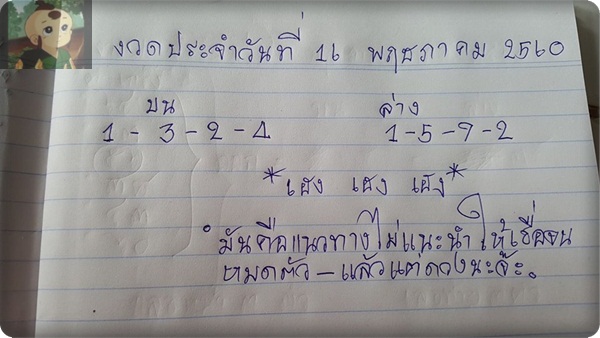 งวดประจำวันที่ 16 พฤษภาคม 2560
บน ล่าง
1 - 3 - 2 - 4 1-5-9-2
*เฮง เฮง เฮง*
มันคือแนวทางไม่แนะนำให้เชื่อจน
หมดตัว - แล้วแต่ดวงนะจ๊ะ.